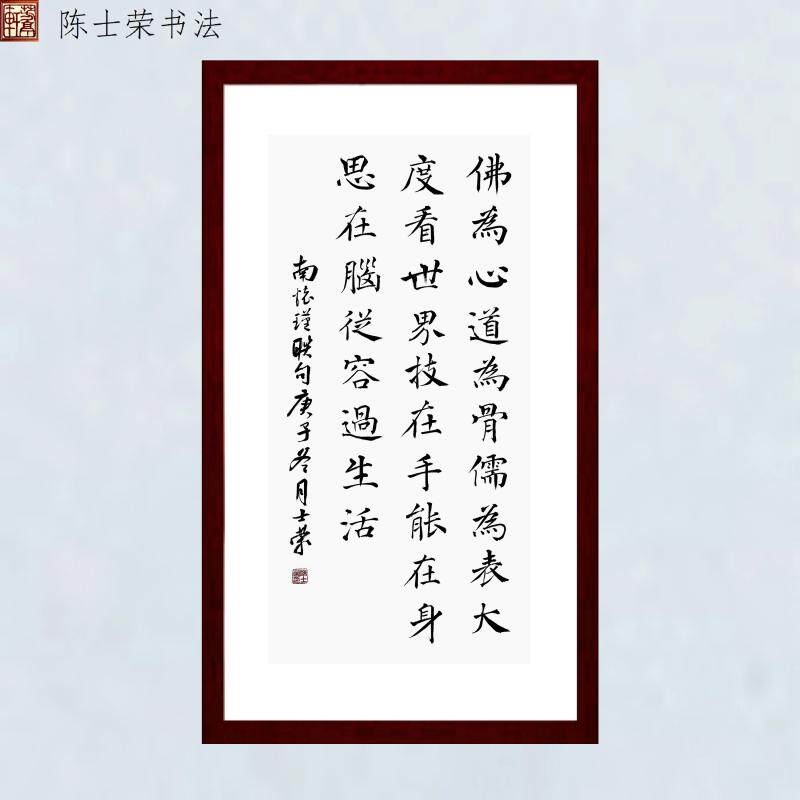 陈士荣书法
佛為心道為骨儒為表大
度看世界技在手能在身
思在腦從容過生活
南懷瑾联句庚子冬月士荣